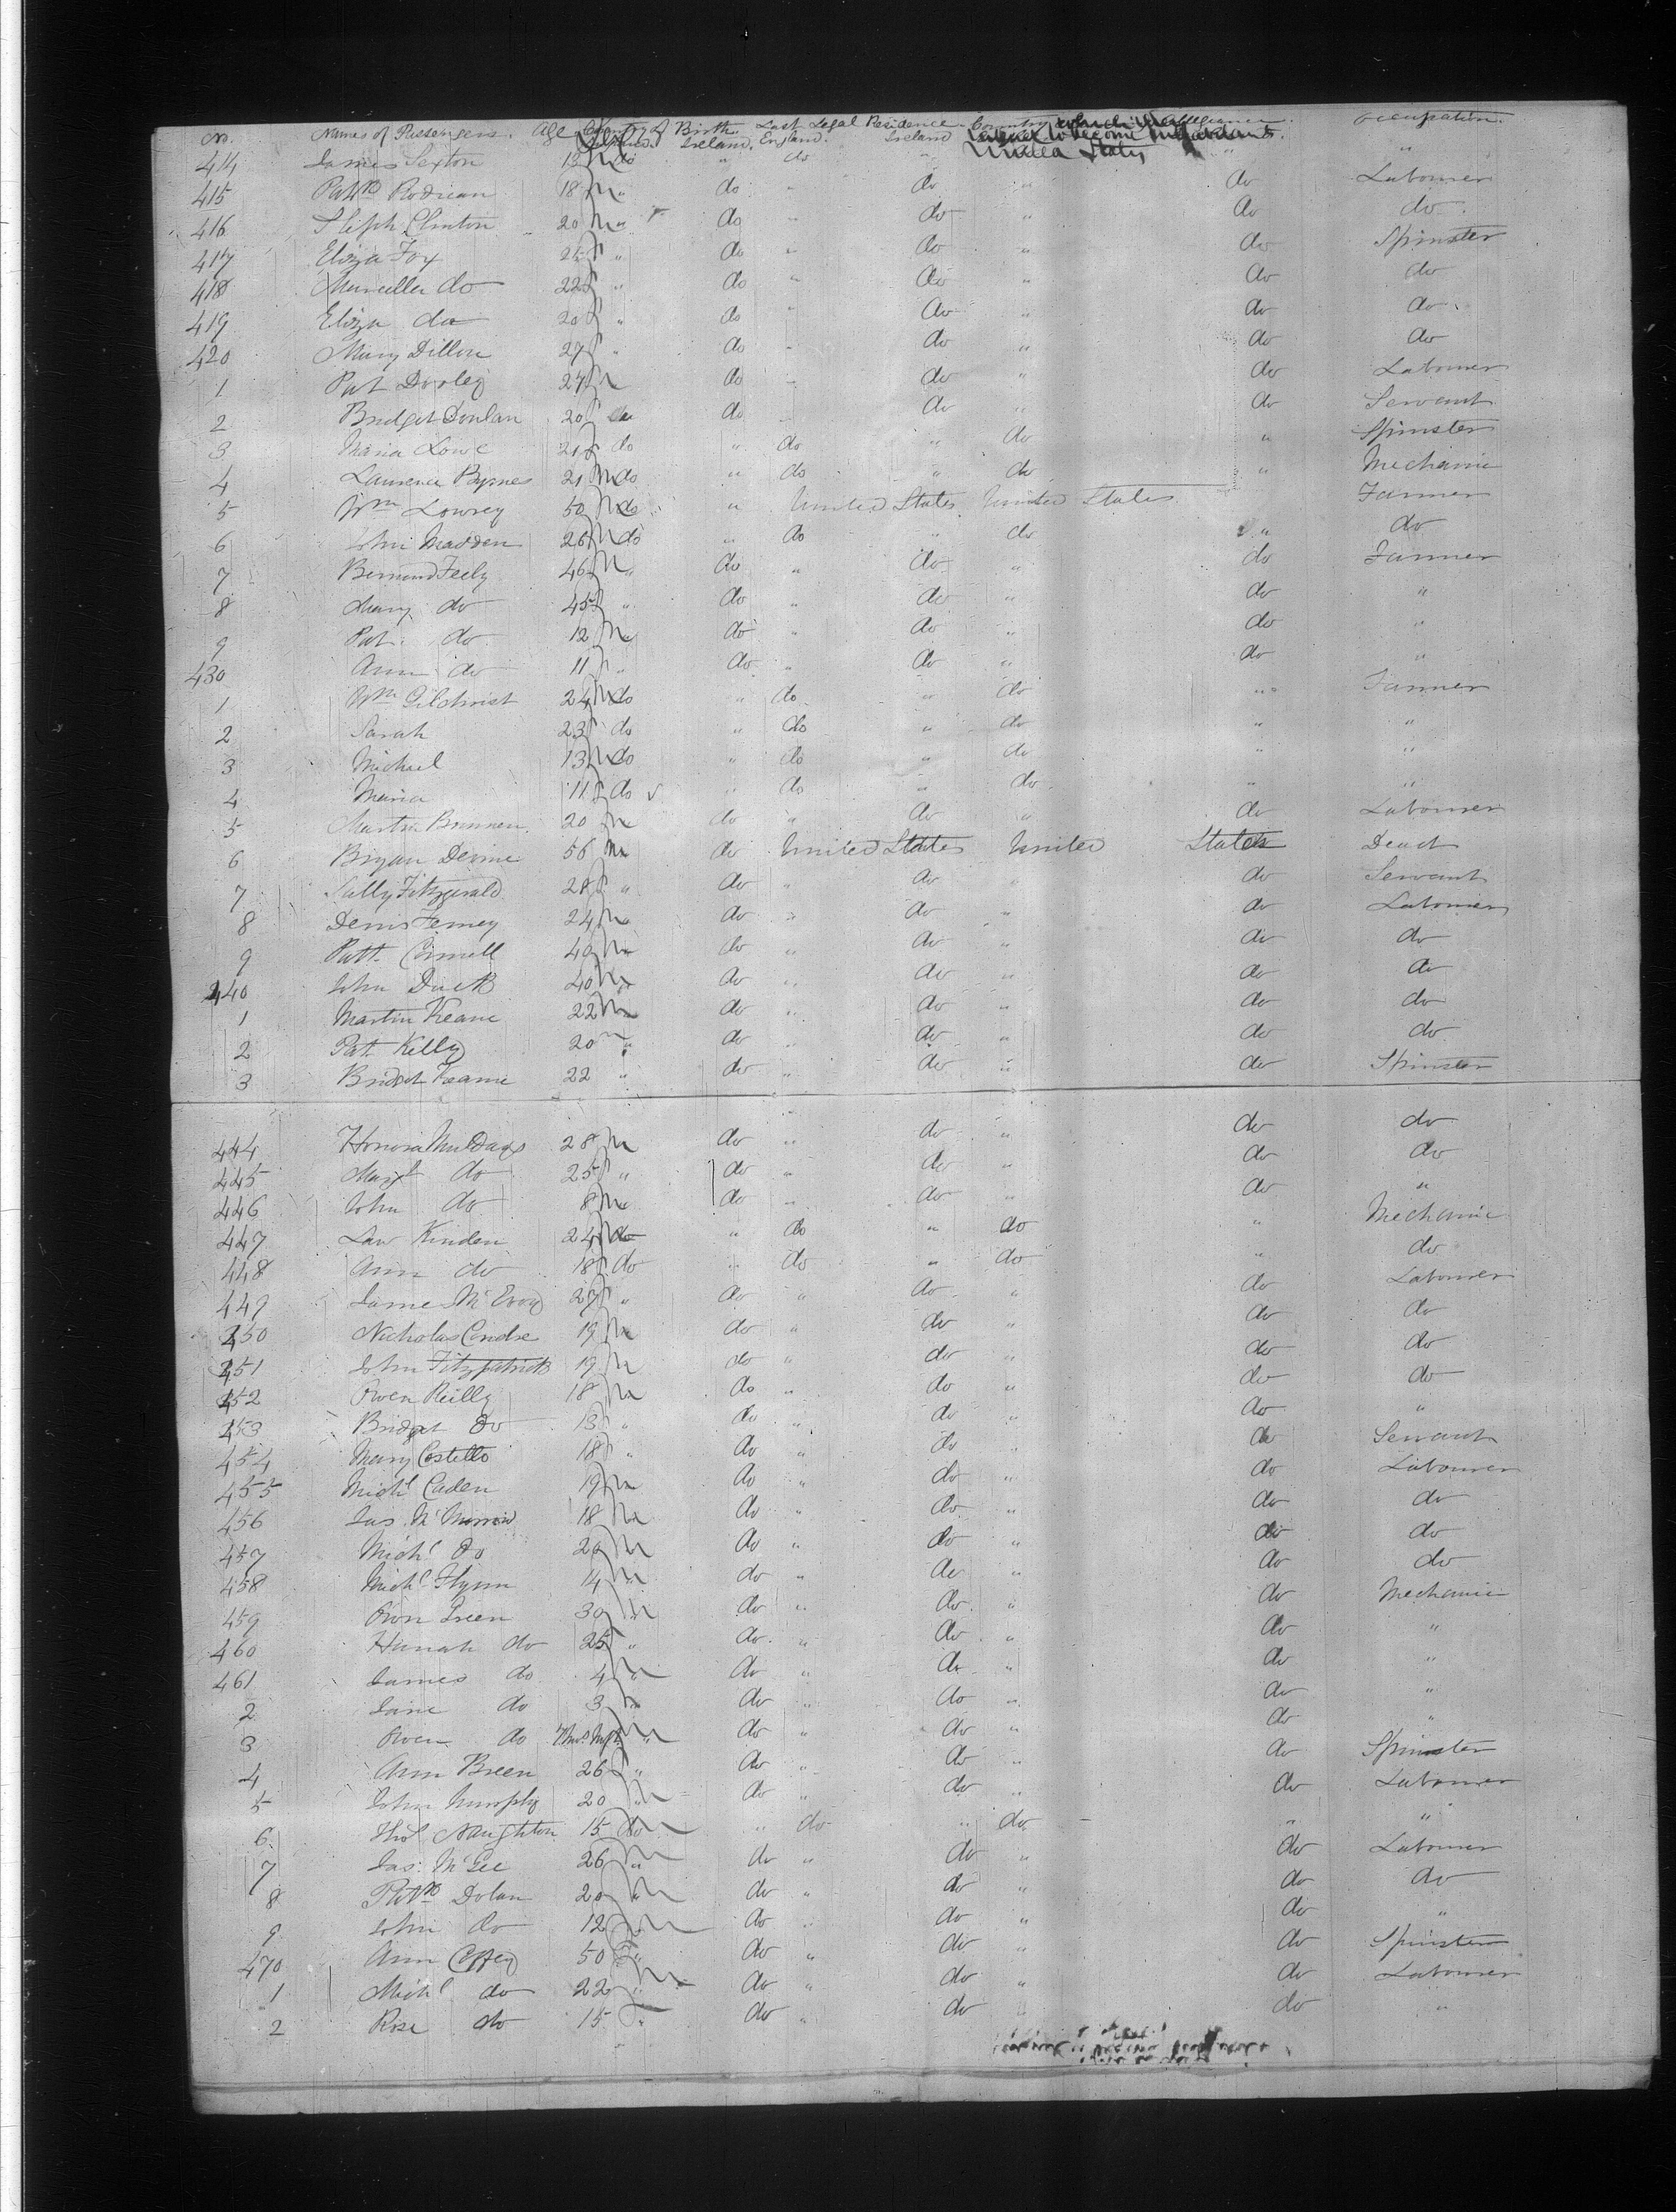 No. Names of Passengers. Age Country of Birth. Last Legal Residence Country which they intend to become inhabitants. occupation.
England. Ireland. England. Ireland United States
414 James Sexton 12 m do " do " " "
415 Patk Rodican 18 m " do " do " do Labourer
416 Steph Clinton 20 m " do " do " do do
417 Eliza Fox 25 f " do " do " do Spinster
418 do 22 f " do " do " do do
419 Eliza do 20 f " do " do " do do
420 Mary Dillon 27 f " do " do " do do
1 Pat Dooley 27 m do " do " do Labourer
2 Bridget Donlan 20 f do " do " do Servant
3 Maria Lowe 21 f do " do " do " Spinster
4 Laurence Byrnes 21 m do " do " do " Mechanic
5 Wm Lowrey 50 m do " United States United States Farmer
6 John Madden 26 m do " do " do " do
7 Bernard Feely 46 m " do " do " do Farmer
8 Mary do 45 f " do " do " do "
9 Pat do 12 m do " do " do "
430 Ann do 11 " do " do " do "
1 Wm Gilchrist 24 m do " do " do " Farmer
2 Sarah 23 f do " do " do " "
3 Michael 13 m do " do " do " "
4 Maria 11 f do " do " do " "
5 Martin Brennen 20 m do " do " do Labourer
6 Bryan Devine 56 m do United States United States Dead
7 Sally Fitzgerald 28 f " do " do " do Servant
8 Denis Ferney 24 m do " do " do Labourer
9 Patt. 40 m do " do " do do
440 John Duck 40 m do " do " do do
1 Martin Keane 22 m do " do " do do
2 Patt Kelly 20 m " do " do " do do
3 Bridget Keane 22 " do " do " do Spinster
444 Honora 28 m do " do " do do
445 Margt do 25 f " do " do " do do
446 John do 8 m do " do " do "
447 Law Kinden 24 m do " do " do " Mechanic
448 Ann do 18 f do " do " do " do
449 James McEvoy 27 f " do " do " do Labourer
450 Nicholas 19 m do " do " do do
451 John Fitzpatrick 19 m do " do " do do
452 Owen Reilly 18 m do " do " do do
453 Bridget do 13 f " do " do " do "
454 Mary Costello 18 f " do " do " do Servant
455 Michl Caden 19 m do " do " do Labourer
456 Jas. 18 m do " do " do do
457 Michl do 20 m do " do " do do
458 Michl Flynn 14 m do " do " do do
459 Owen Green 30 m do " do " do Mechanic
460 Hanah do 25 f " do " do " do "
461 James do 4 m do " do " do "
2 Jane do 3 do " do " do "
3 Owen do do " do " do "
4 Ann Breen 26 f " do " do " do Spinster
5 John Murphy 20 m do " do " do Labourer
6 Thos Naughton 15 do m " do " do " "
7 Jas. McGee 26 m do " do " do Labourer
8 Patk Dolan 20 m do " do " do do
9 John do 12 m do " do " do "
470 Ann Coffey 50 f " do " do " do Spinster
1 Michl do 22 m do " do " do Labourer
2 Rose do 15 f " do " do " do "